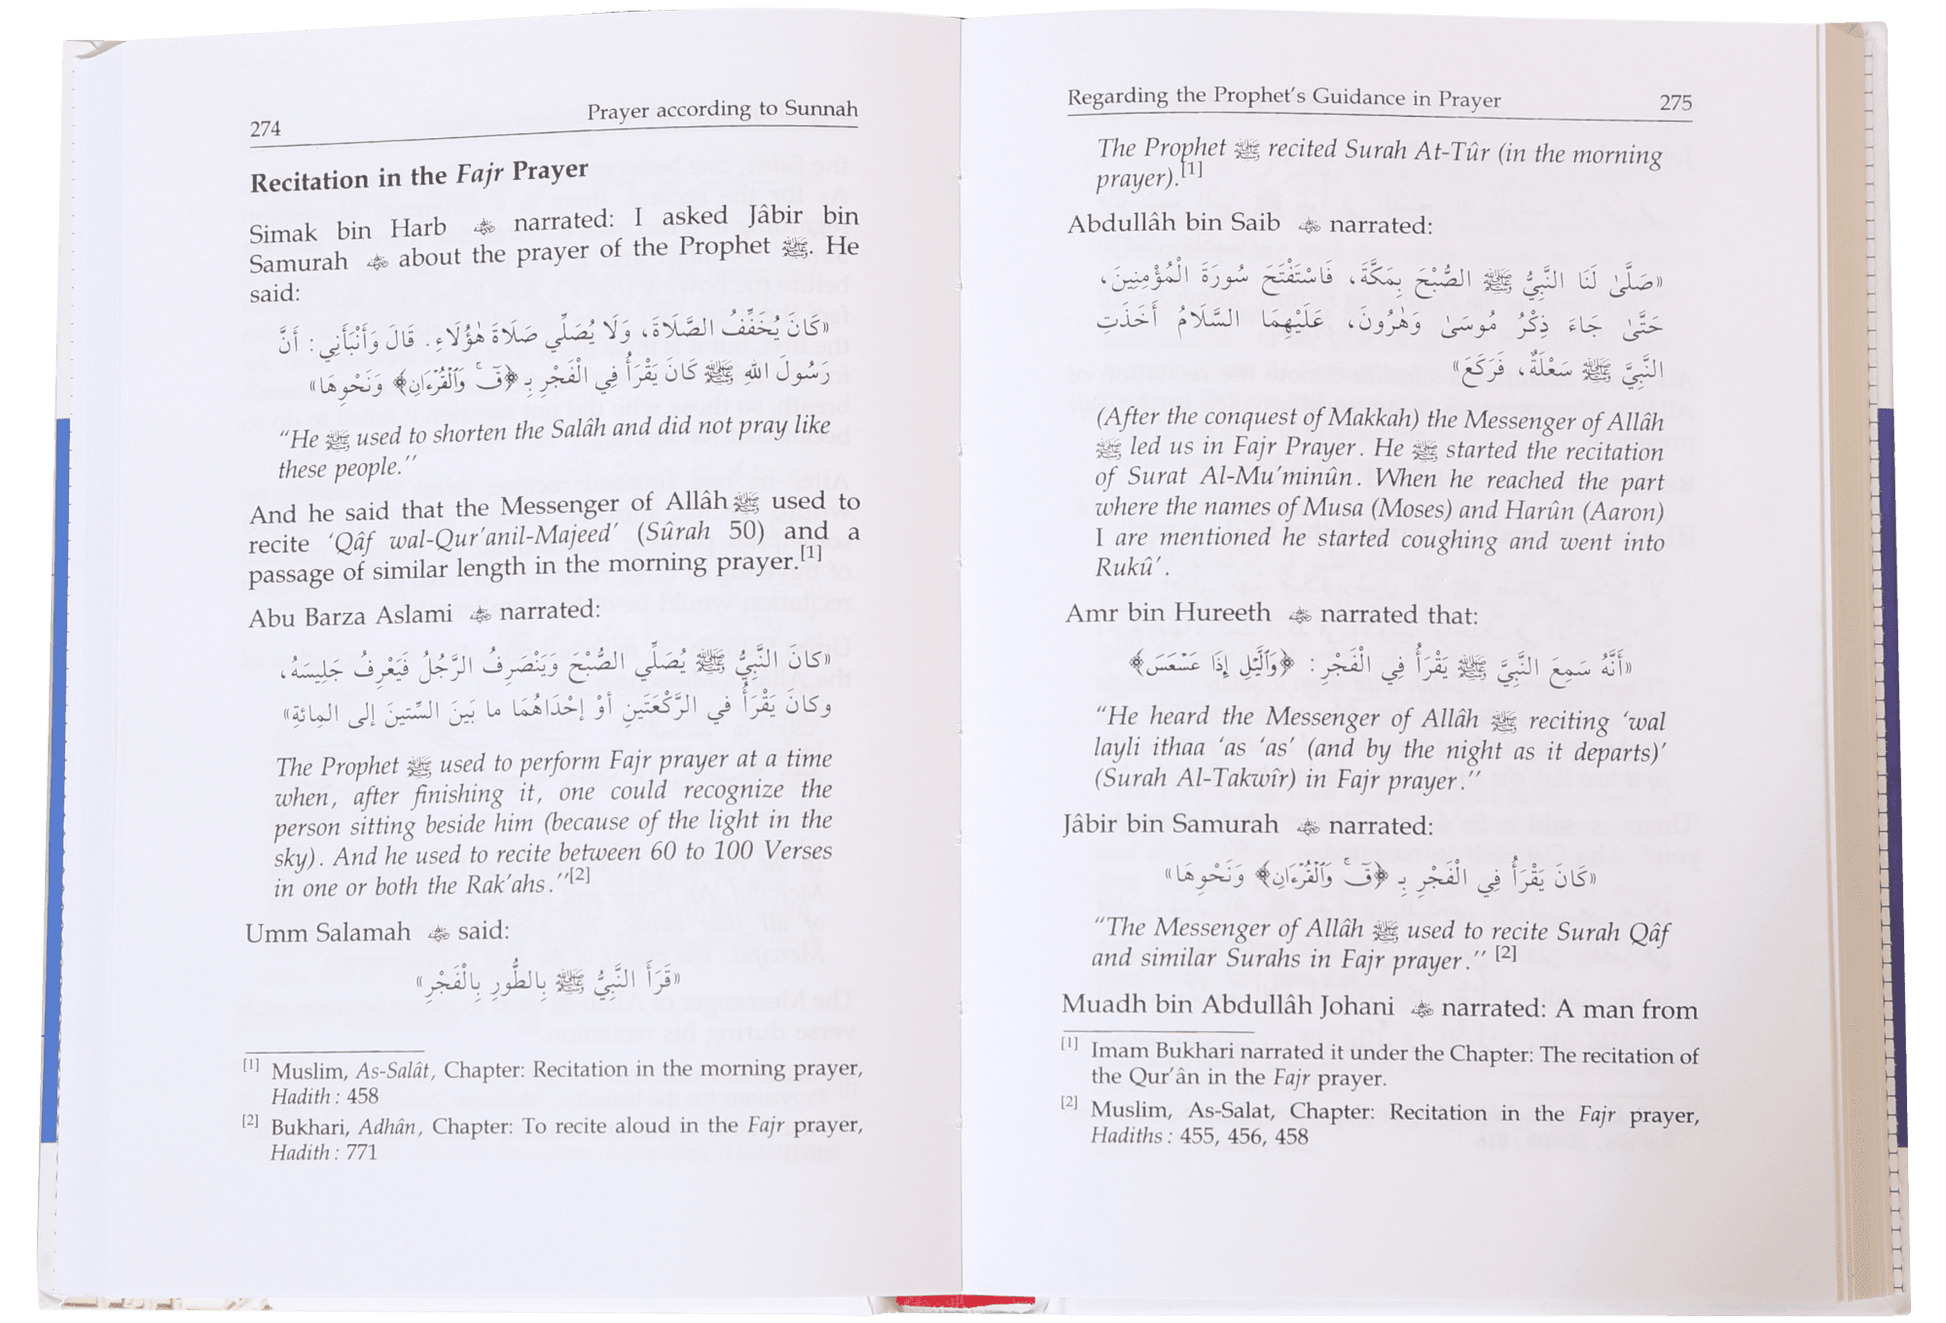 274
Prayer according to Sunnah
Recitation in the Fajr Prayer
Simak bin Harb narrated: I asked Jâbir bin
Samurah about the prayer of the Prophet ﷺ. He
said:
«كَانَ يُخَفِّفُ الصَّلَاةَ، وَلَا يُصَلِّي صَلَاةَ هٰؤُلَاءِ. قَالَ وَأَنْبَأَنِي: أَنَّ
رَسُولَ اللهِ ﷺ كَانَ يَقْرَأُ فِي الْفَجْرِ بِـ ﴿قٓ ۚ وَٱلْقُرْءَانِ﴾ وَنَحْوِهَا»
“He ﷺ used to shorten the Salâh and did not pray like
these people.’’
And he said that the Messenger of Allâh ﷺ used to
recite ‘Qâf wal-Qur’anil-Majeed’ (Sûrah 50) and a
passage of similar length in the morning prayer.[1]
Abu Barza Aslami narrated:
«كَانَ النَّبِيُّ ﷺ يُصَلِّي الصُّبْحَ وَيَنْصَرِفُ الرَّجُلُ فَيَعْرِفُ جَلِيسَهُ،
وكَانَ يَقْرَأُ في الرَّكْعَتَينِ أوْ إحْدَاهُمَا ما بَينَ السِّتينَ إلى المِائةِ»
The Prophet ﷺ used to perform Fajr prayer at a time
when, after finishing it, one could recognize the
person sitting beside him (because of the light in the
sky). And he used to recite between 60 to 100 Verses
in one or both the Rak’ahs.’’[2]
Umm Salamah said:
«قَرَأَ النَّبِيُّ ﷺ بِالطُّورِ بِالْفَجْرِ»
[1] Muslim, As-Salât, Chapter: Recitation in the morning prayer,
Hadith: 458
[2] Bukhari, Adhân, Chapter: To recite aloud in the Fajr prayer,
Hadith: 771
Regarding the Prophet’s Guidance in Prayer
275
The Prophet ﷺ recited Surah At-Tûr (in the morning
prayer).[1]
Abdullâh bin Saib narrated:
«صَلَّىٰ لَنَا النَّبِيُّ ﷺ الصُّبْحَ بِمَكَّةَ، فَاسْتَفْتَحَ سُورَةَ الْمُؤْمِنِينَ،
حَتَّىٰ جَاءَ ذِكْرُ مُوسَىٰ وَهٰرُونَ، عَلَيْهِمَا السَّلَامُ أَخَذَتِ
النَّبِيَّ ﷺ سَعْلَةٌ، فَرَكَعَ»
(After the conquest of Makkah) the Messenger of Allâh
ﷺ led us in Fajr Prayer. He ﷺ started the recitation
of Surat Al-Mu’minûn. When he reached the part
where the names of Musa (Moses) and Harûn (Aaron)
I are mentioned he started coughing and went into
Rukû’.
Amr bin Hureeth narrated that:
«أَنَّهُ سَمِعَ النَّبِيَّ ﷺ يَقْرَأُ فِي الْفَجْرِ: ﴿وَٱلَّيْلِ إِذَا عَسْعَسَ﴾
“He heard the Messenger of Allâh ﷺ reciting ‘wal
layli ithaa ‘as ‘as’ (and by the night as it departs)’
(Surah Al-Takwîr) in Fajr prayer.’’
Jâbir bin Samurah narrated:
«كَانَ يَقْرَأُ فِي الْفَجْرِ بِـ ﴿قٓ ۚ وَٱلْقُرْءَانِ﴾ وَنَحْوِهَا»
“The Messenger of Allâh ﷺ used to recite Surah Qâf
and similar Surahs in Fajr prayer.’’ [2]
Muadh bin Abdullâh Johani narrated: A man from
[1] Imam Bukhari narrated it under the Chapter: The recitation of
the Qur’ân in the Fajr prayer.
[2] Muslim, As-Salat, Chapter: Recitation in the Fajr prayer,
Hadiths: 455, 456, 458